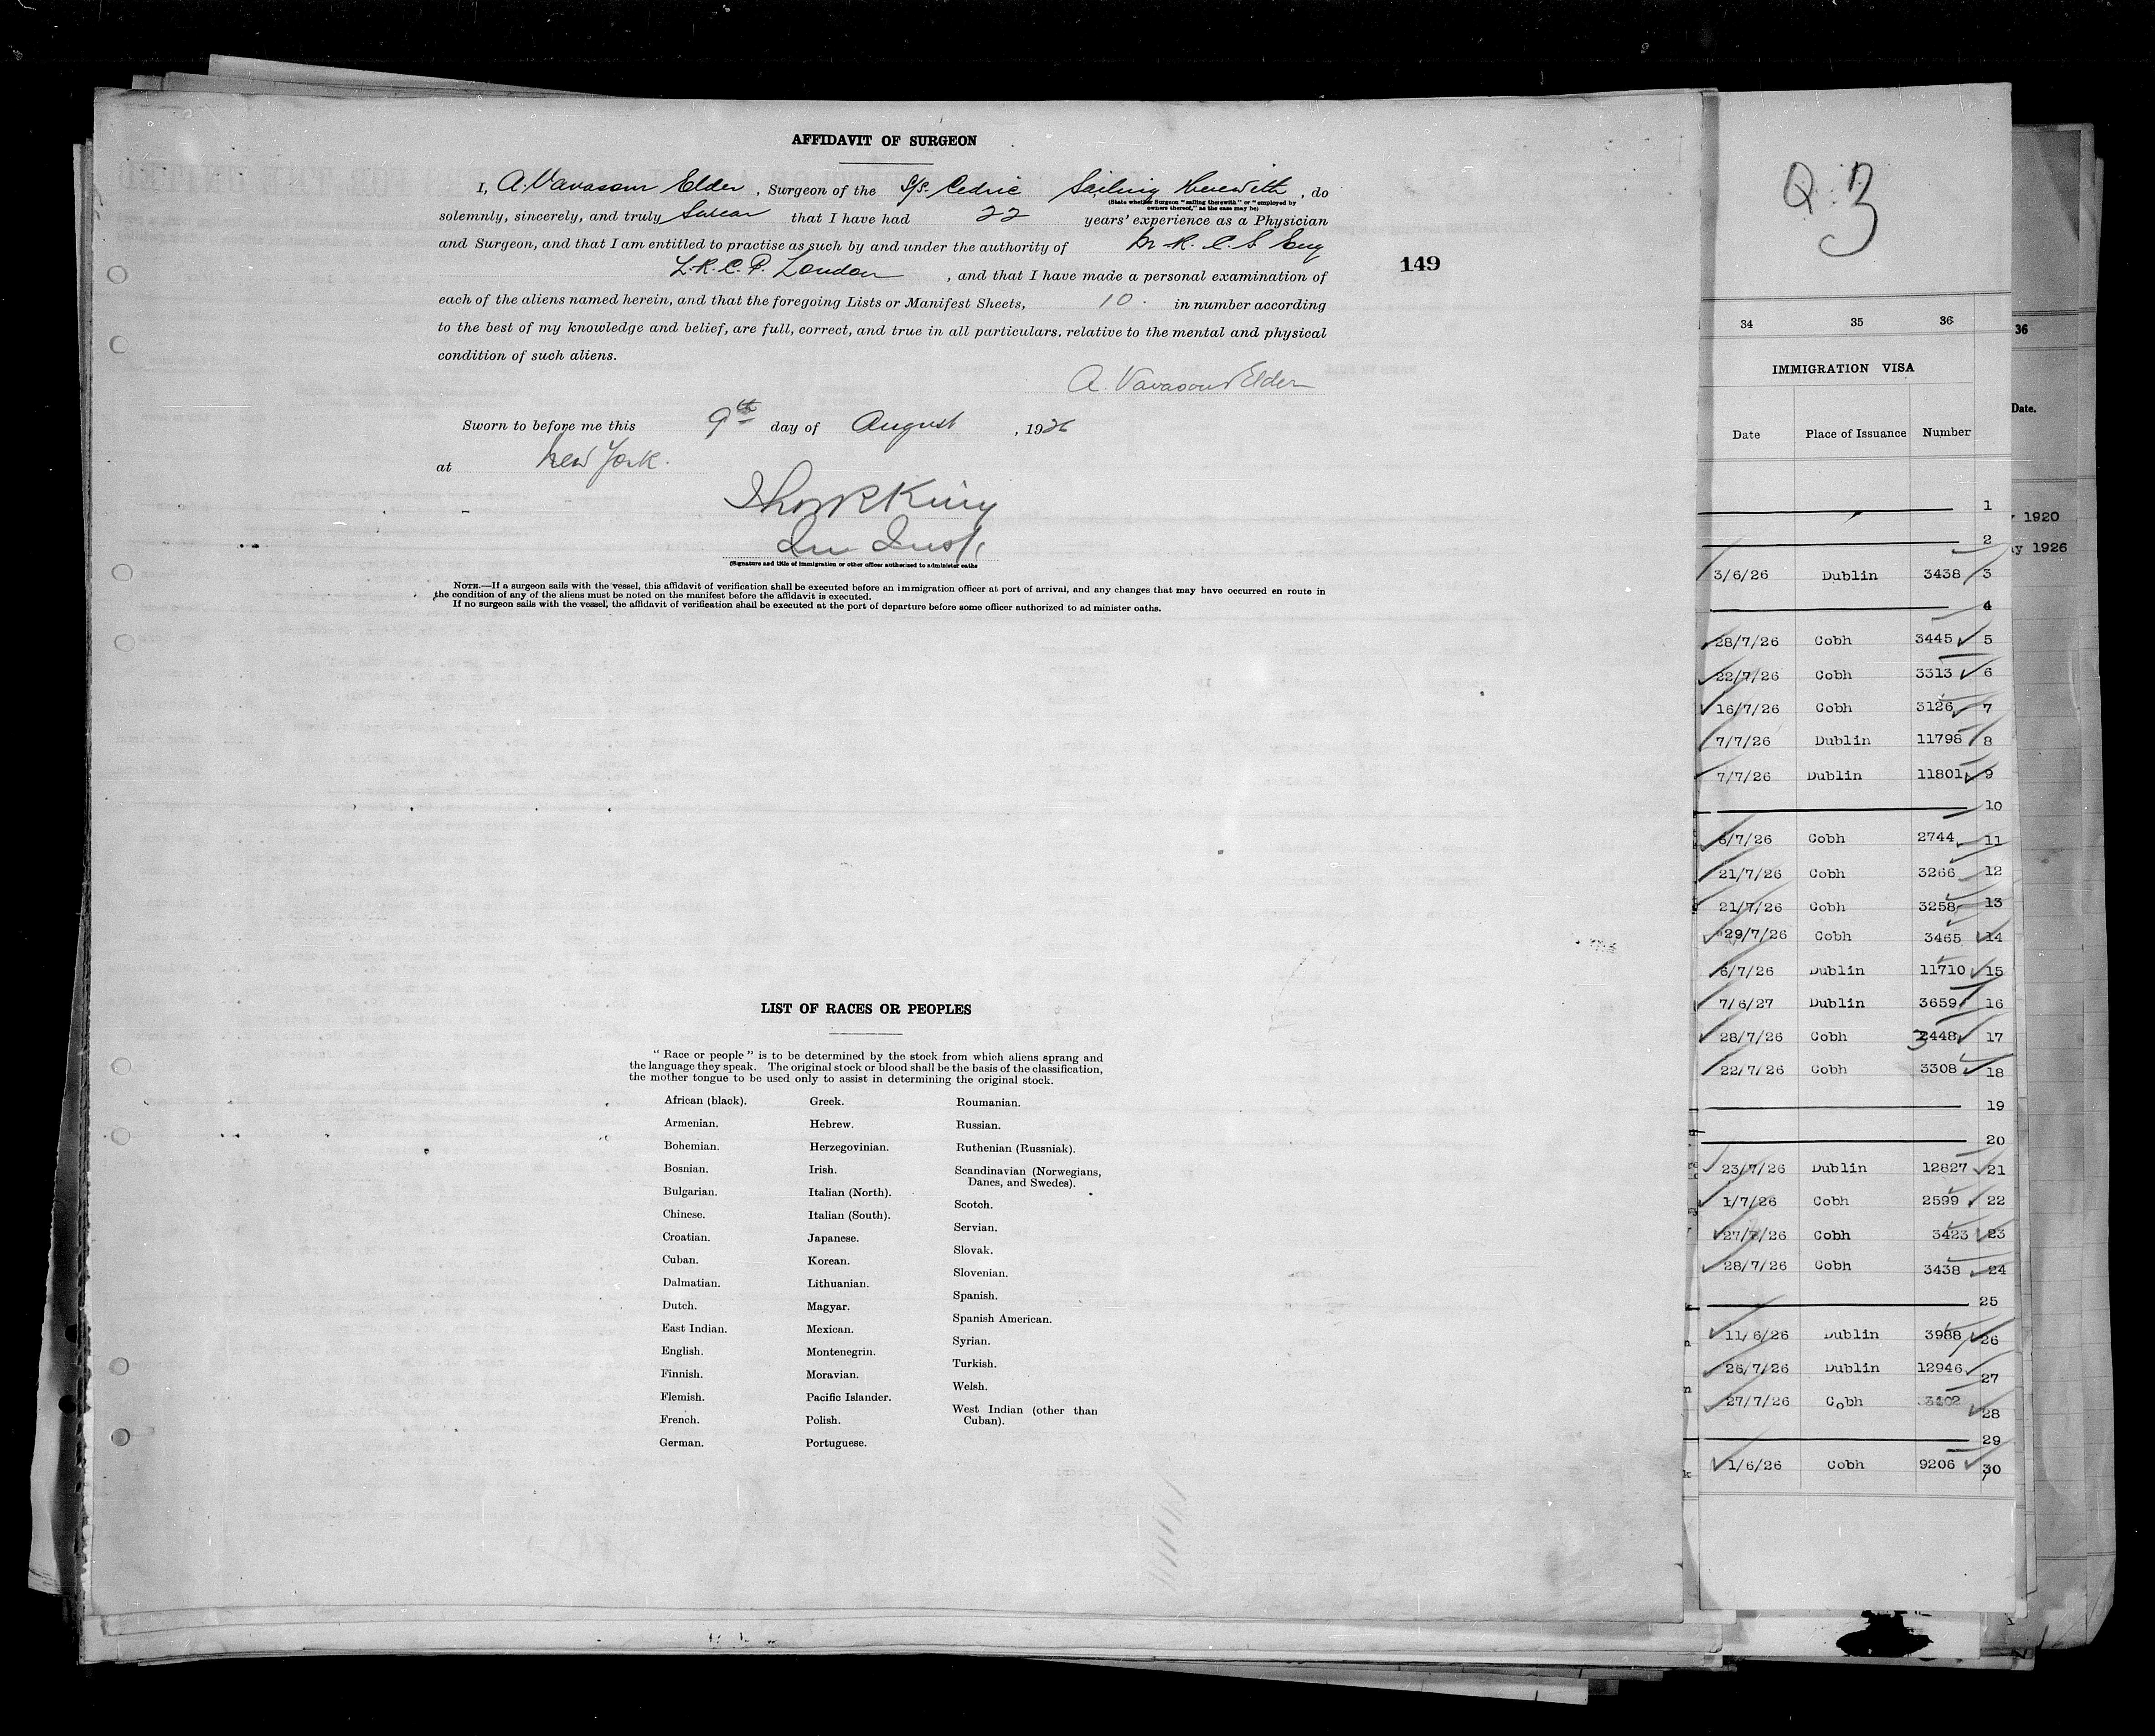 AFFIDAVIT OF SURGEON
I, A. Vavasour Elder, Surgeon of the S/S. Cedric Sailing Therewith, do
(State whether Surgeon "sailing therewith" or "employed by
owners thereof," as the case may be)
solemnly, sincerely, and truly Swear that I have had 22 years' experience as a Physician
and Surgeon, and that I am entitled to practise as such by and under the authority of M.R.C.S. Eng
L.R.C.P. London, and that I have made a personal examination of
each of the aliens named herein, and that the foregoing Lists or Manifest Sheets, 10. in number according
to the best of my knowledge and belief, are full, correct, and true in all particulars, relative to the mental and physical
condition of such aliens.
A. Vavasour Elder
Sworn to before me this 9th day of August, 1926
at New York.
King
(Signature and title of immigration or other officer authorised to administer oaths
NOTE.—If a surgeon sails with the vessel, this affidavit of verification shall be executed before an immigration officer at port of arrival, and any changes that may have occurred en route in
the condition of any of the aliens must be noted on the manifest before the affidavit is executed.
If no surgeon sails with the vessel, the affidavit of verification shall be executed at the port of departure before some officer authorized to ad minister oaths.
149
LIST OF RACES OR PEOPLES
"Race or people" is to be determined by the stock from which aliens sprang and
the language they speak. The original stock or blood shall be the basis of the classification,
the mother tongue to be used only to assist in determining the original stock.
African (black).
Armenian.
Bohemian.
Bosnian.
Bulgarian.
Chinese.
Croatian.
Cuban.
Dalmatian.
Dutch.
East Indian.
English.
Finnish.
Flemish.
French.
German.
Greek.
Hebrew.
Herzegovinian.
Irish.
Italian (North).
Italian (South).
Japanese.
Korean.
Lithuanian.
Magyar.
Mexican.
Montenegrin.
Moravian.
Pacific Islander.
Polish.
Portuguese.
Roumanian.
Russian.
Ruthenian (Russniak).
Scandinavian (Norwegians,
Danes, and Swedes).
Scotch.
Servian.
Slovak.
Slovenian.
Spanish.
Spanish American.
Syrian.
Turkish.
Welsh.
West Indian (other than
Cuban).
34 35 36
IMMIGRATION VISA
Date Place of Issuance Number
1
2
3/6/26 Dublin 3438 3
4
28/7/26 Cobh 3445 5
22/7/26 Cobh 3313 6
16/7/26 Cobh 3126 7
7/7/26 Dublin 11798 8
7/7/26 Dublin 11801 9
10
6/7/26 Cobh 2744 11
21/7/26 Cobh 3266 12
21/7/26 Cobh 3258 13
29/7/26 Cobh 3465 14
6/7/26 Dublin 11710 15
7/6/27 Dublin 3659 16
28/7/26 Cobh 3448 17
22/7/26 Cobh 3308 18
19
20
23/7/26 Dublin 12827 21
1/7/26 Cobh 2599 22
27/7/26 Cobh 3423 23
28/7/26 Cobh 3438 24
25
11/6/26 Dublin 3988 26
26/7/26 Dublin 12946 27
27/7/26 Cobh 3402 28
29
1/6/26 Cobh 9206 30
36
Date.
1920
y 1926